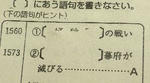 〔 〕にあう語句を書きなさい。
(下の語句がヒント)
1560 ①〔 〕の戦い
1573 ②〔 〕幕府が
滅びる……………A